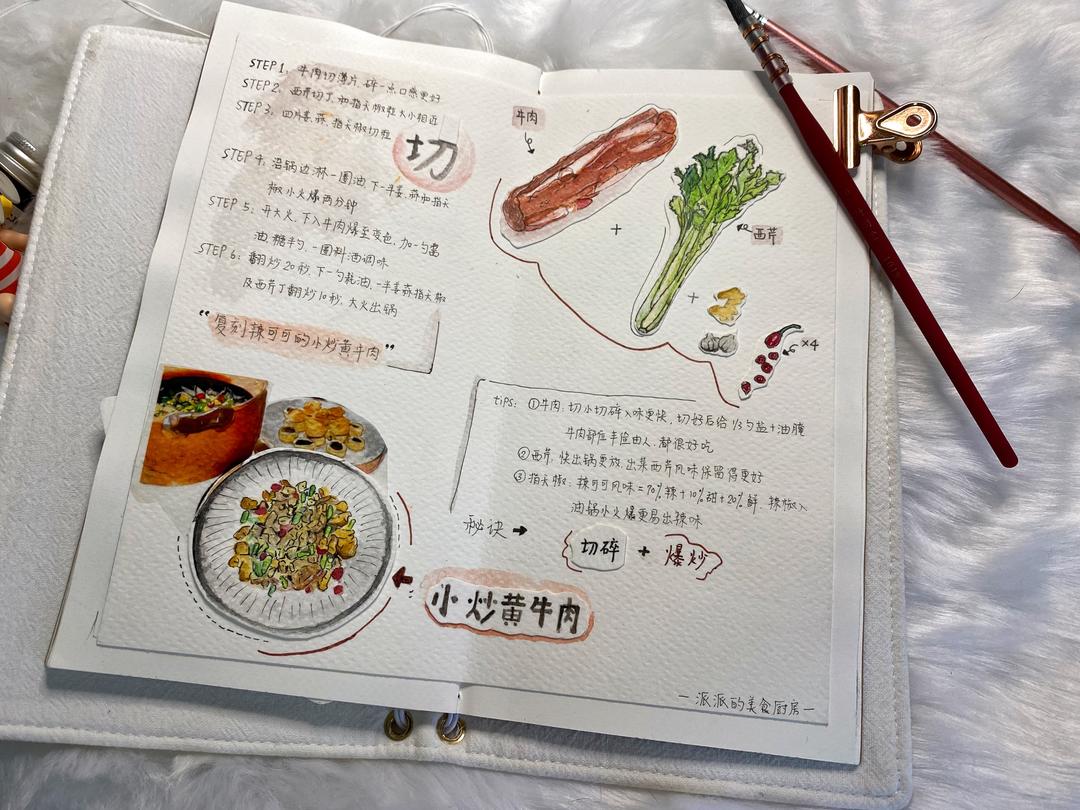 STEP 1: 牛肉切薄片,碎一点口感更好
STEP 2: 西芹切丁,和指天椒粒大小相近
STEP 3: 四片姜、蒜、指天椒切粒
切
STEP 4: 沿锅边淋一圈油,下一半姜、蒜和指天
椒小火爆两分钟
STEP 5: 开大火,下入牛肉爆至变色,加一勺酱
油,糖半勺,一圈料酒调味
STEP 6: 翻炒20秒,下一勺耗油,一半姜蒜指天椒
及西芹丁翻炒10秒,大火出锅
“复刻辣可可的小炒黄牛肉”
牛肉
+
西芹
+
×4
tips: ①牛肉:切小切碎入味更快,切好后给1/3勺盐+油腌
牛肉部位丰俭由人,都很好吃
②西芹,快出锅更放,出菜西芹风味保留得更好
③指天椒:辣可可风味=70%辣+10%甜+20%鲜,辣椒入
油锅小火爆更易出辣味
秘诀 → 切碎 + 爆炒
小炒黄牛肉
—派派的美食厨房—